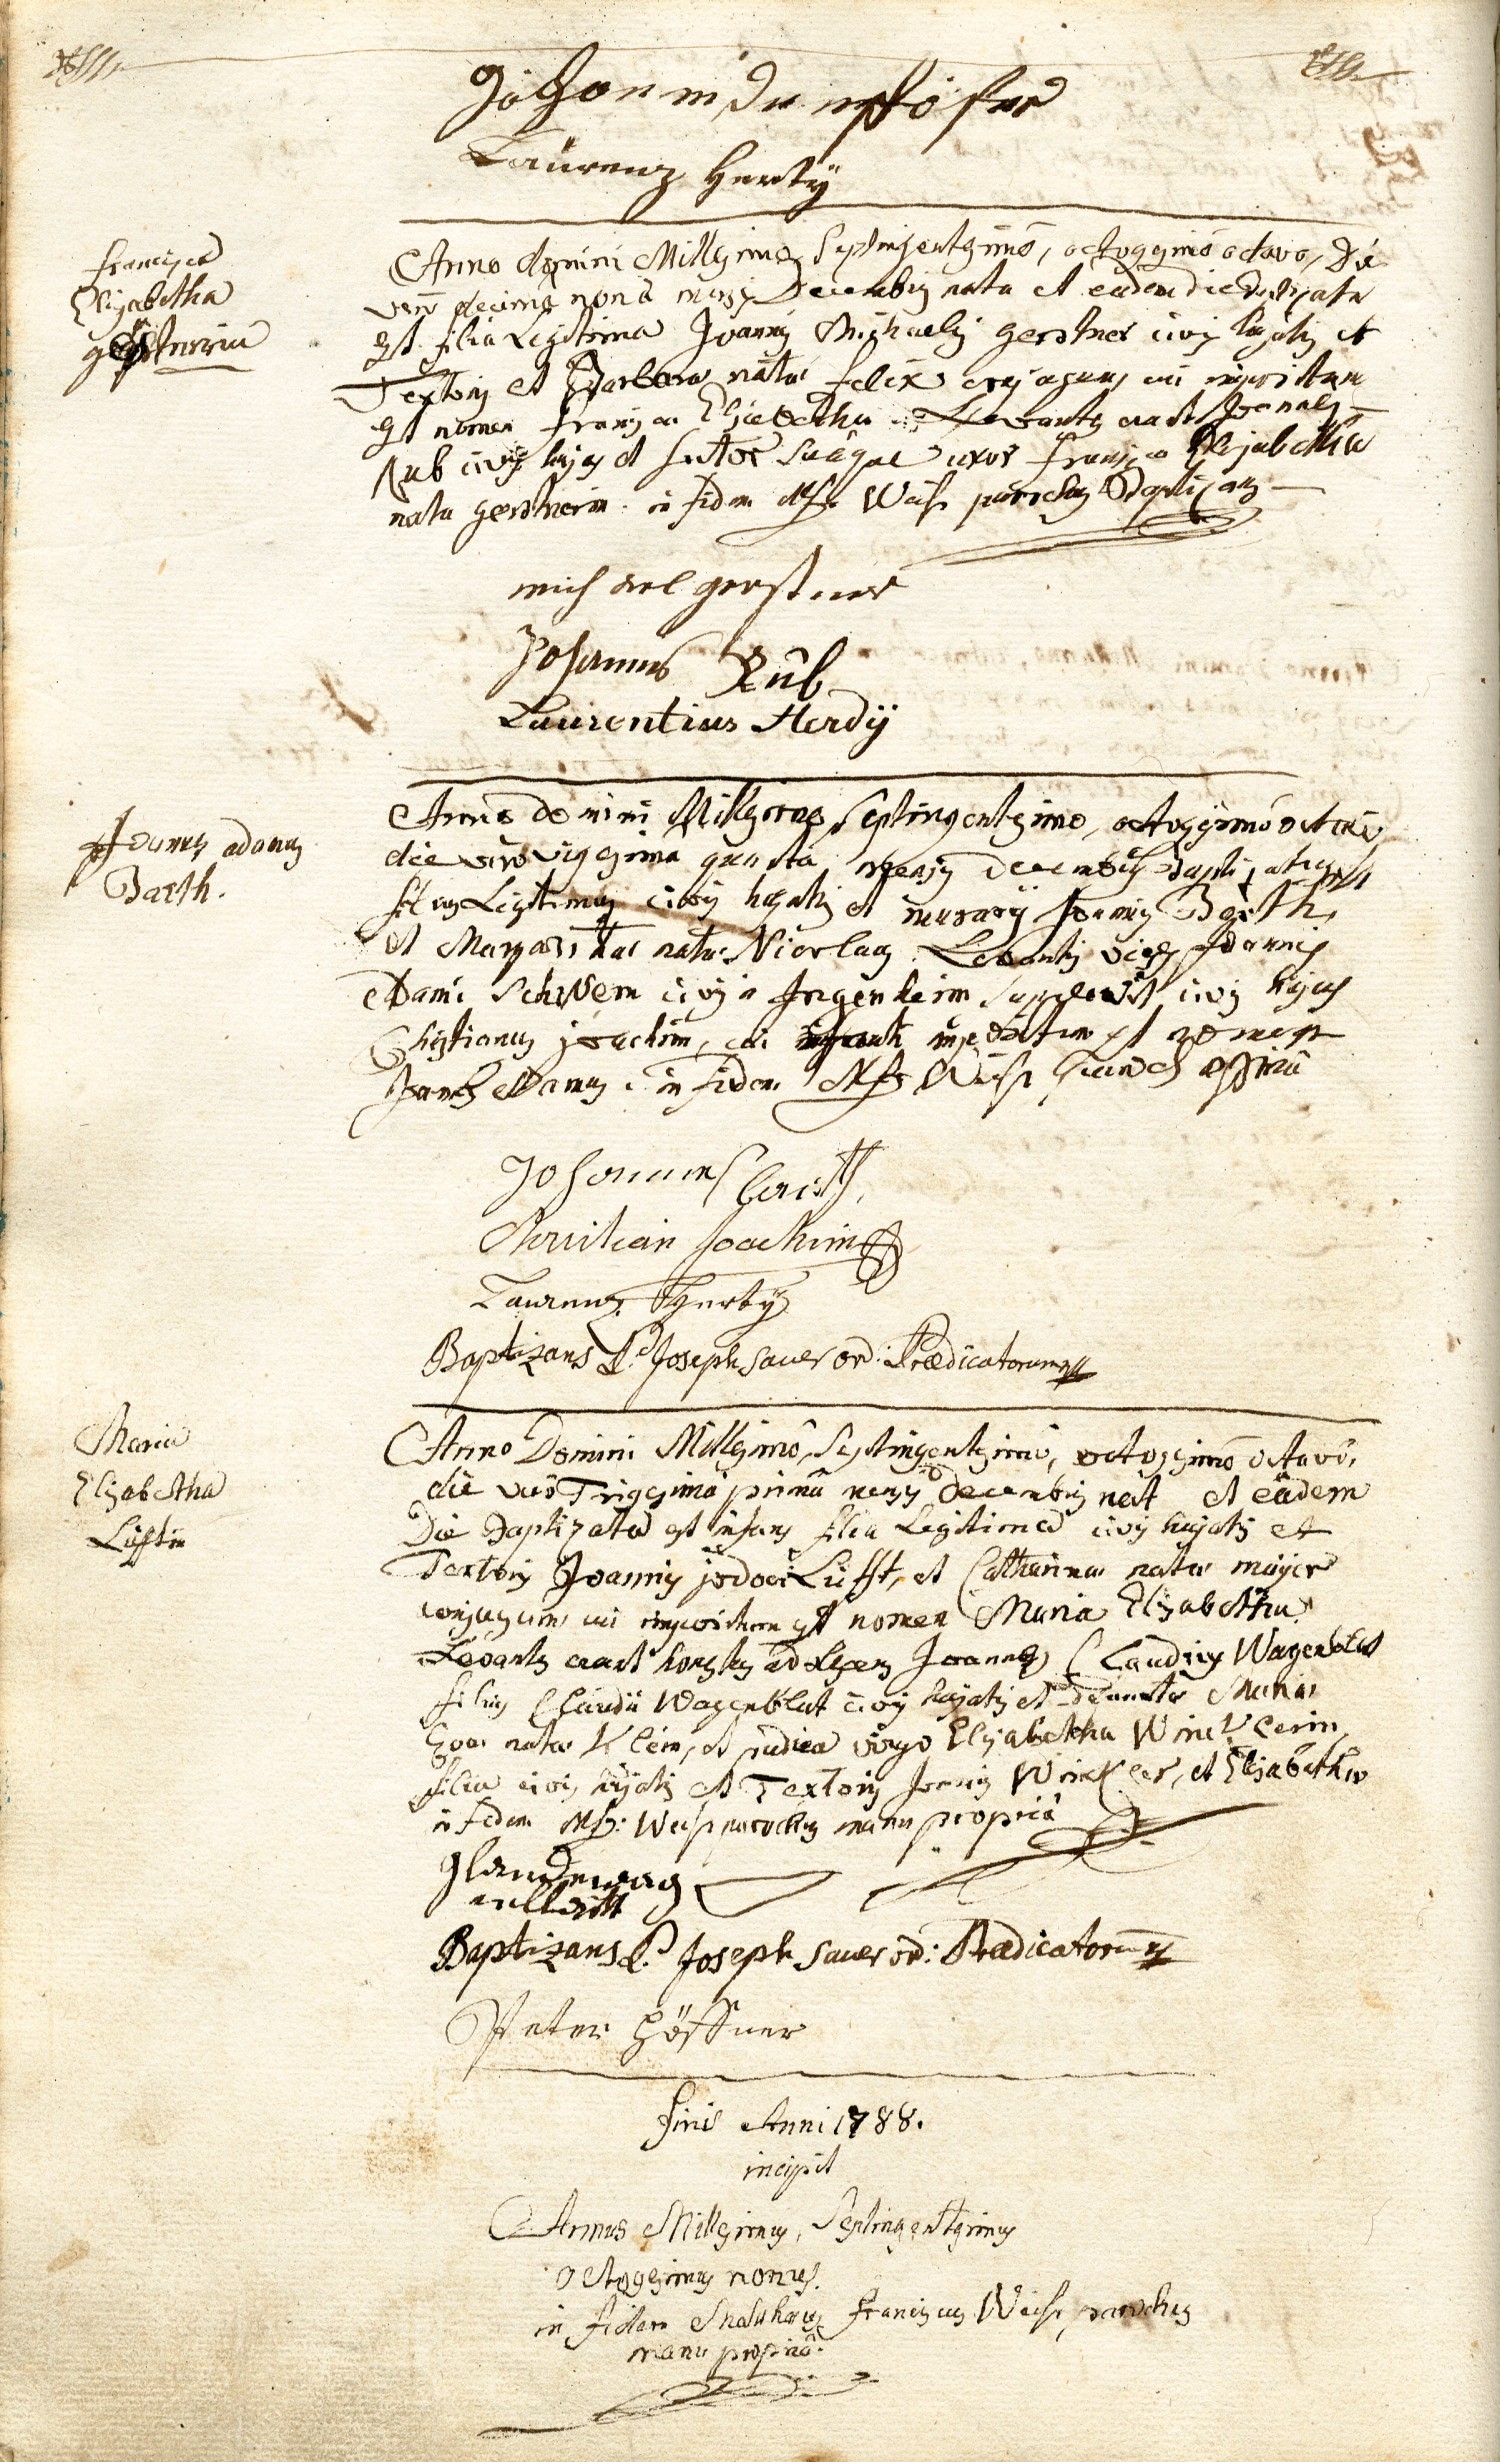 Laurenz Herty
Francisca
Elisabetha
gerstnerin
Anno domini Millesimo Septingentesimo, octogesimo octavo, Die
vero decima nona mensis Decembris nata et eadem die Baptizata
est filia Legitima Joannis Michaelis gerstner civis hujatis et
Textoris et Barbara nata felix conjugum cui impositum
est nomen Francisca Elisabetha Levantes erant Joannes
Rub civis hujas et sutor suaque uxor Francisca Elisabetha
nata gerstnerin in fidem Ms. Weis parochus Baptizans
michael gerstner
Johannes Rub
Laurentius Herdÿ
Joannes adamus
Barth.
Anno domini Millesimo Septingentesimo, octogesimo octavo,
die vero vigesima quarta mensis Decembris Baptizatus est
filius Legitimus civis hujatis et murarÿ Joannis Barth,
et Margaritae nata Nicolaus Levantis vices Joannis
Adami Schwem civis in Ingenheim supplevit, civis hujus
Christianus joachim, cui impositum est nomen
Joannes Adamus in fidem Ms Weis
Johannes barth,
Christian Joachim
Laurenz Herty
Baptizans P. Joseph Sauer ord: Praedicatorum
Maria
Elisabetha
Lüfftin
Anno Domini Millesimo, Septingentesimo, octogesimo octavo,
die vero Trigesima prima mensis Decembris nat et eadem
Die Baptizata est infans filia Legitima civis hujatis et
Textoris Joannis jodoci Lüfft, et Catharina nata mayer
conjugum cui impositum est nomen Maria Elisabetha
Levantes erant honestus adolescens Joannes Claudius Wagenblat
filius Claudii Wagenblat civis hujatis et defunctae Maria
Eva nata Klem, et pudica virgo Elisabetha Wincklerin
filia civis hujatis et Textoris Joannis Winckler, et Elisabetha
in fidem Ms: Weis parochus manu propria
Baptizans P. Joseph Sauer ord: Praedicatorum
Peter Höffner
finis Anni 1788.
incipit
Annus Millesimus, Septingentesimus
octogesimus nonus.
in fidem Mathaeus Franciscus Weis, parochus
manu propria.